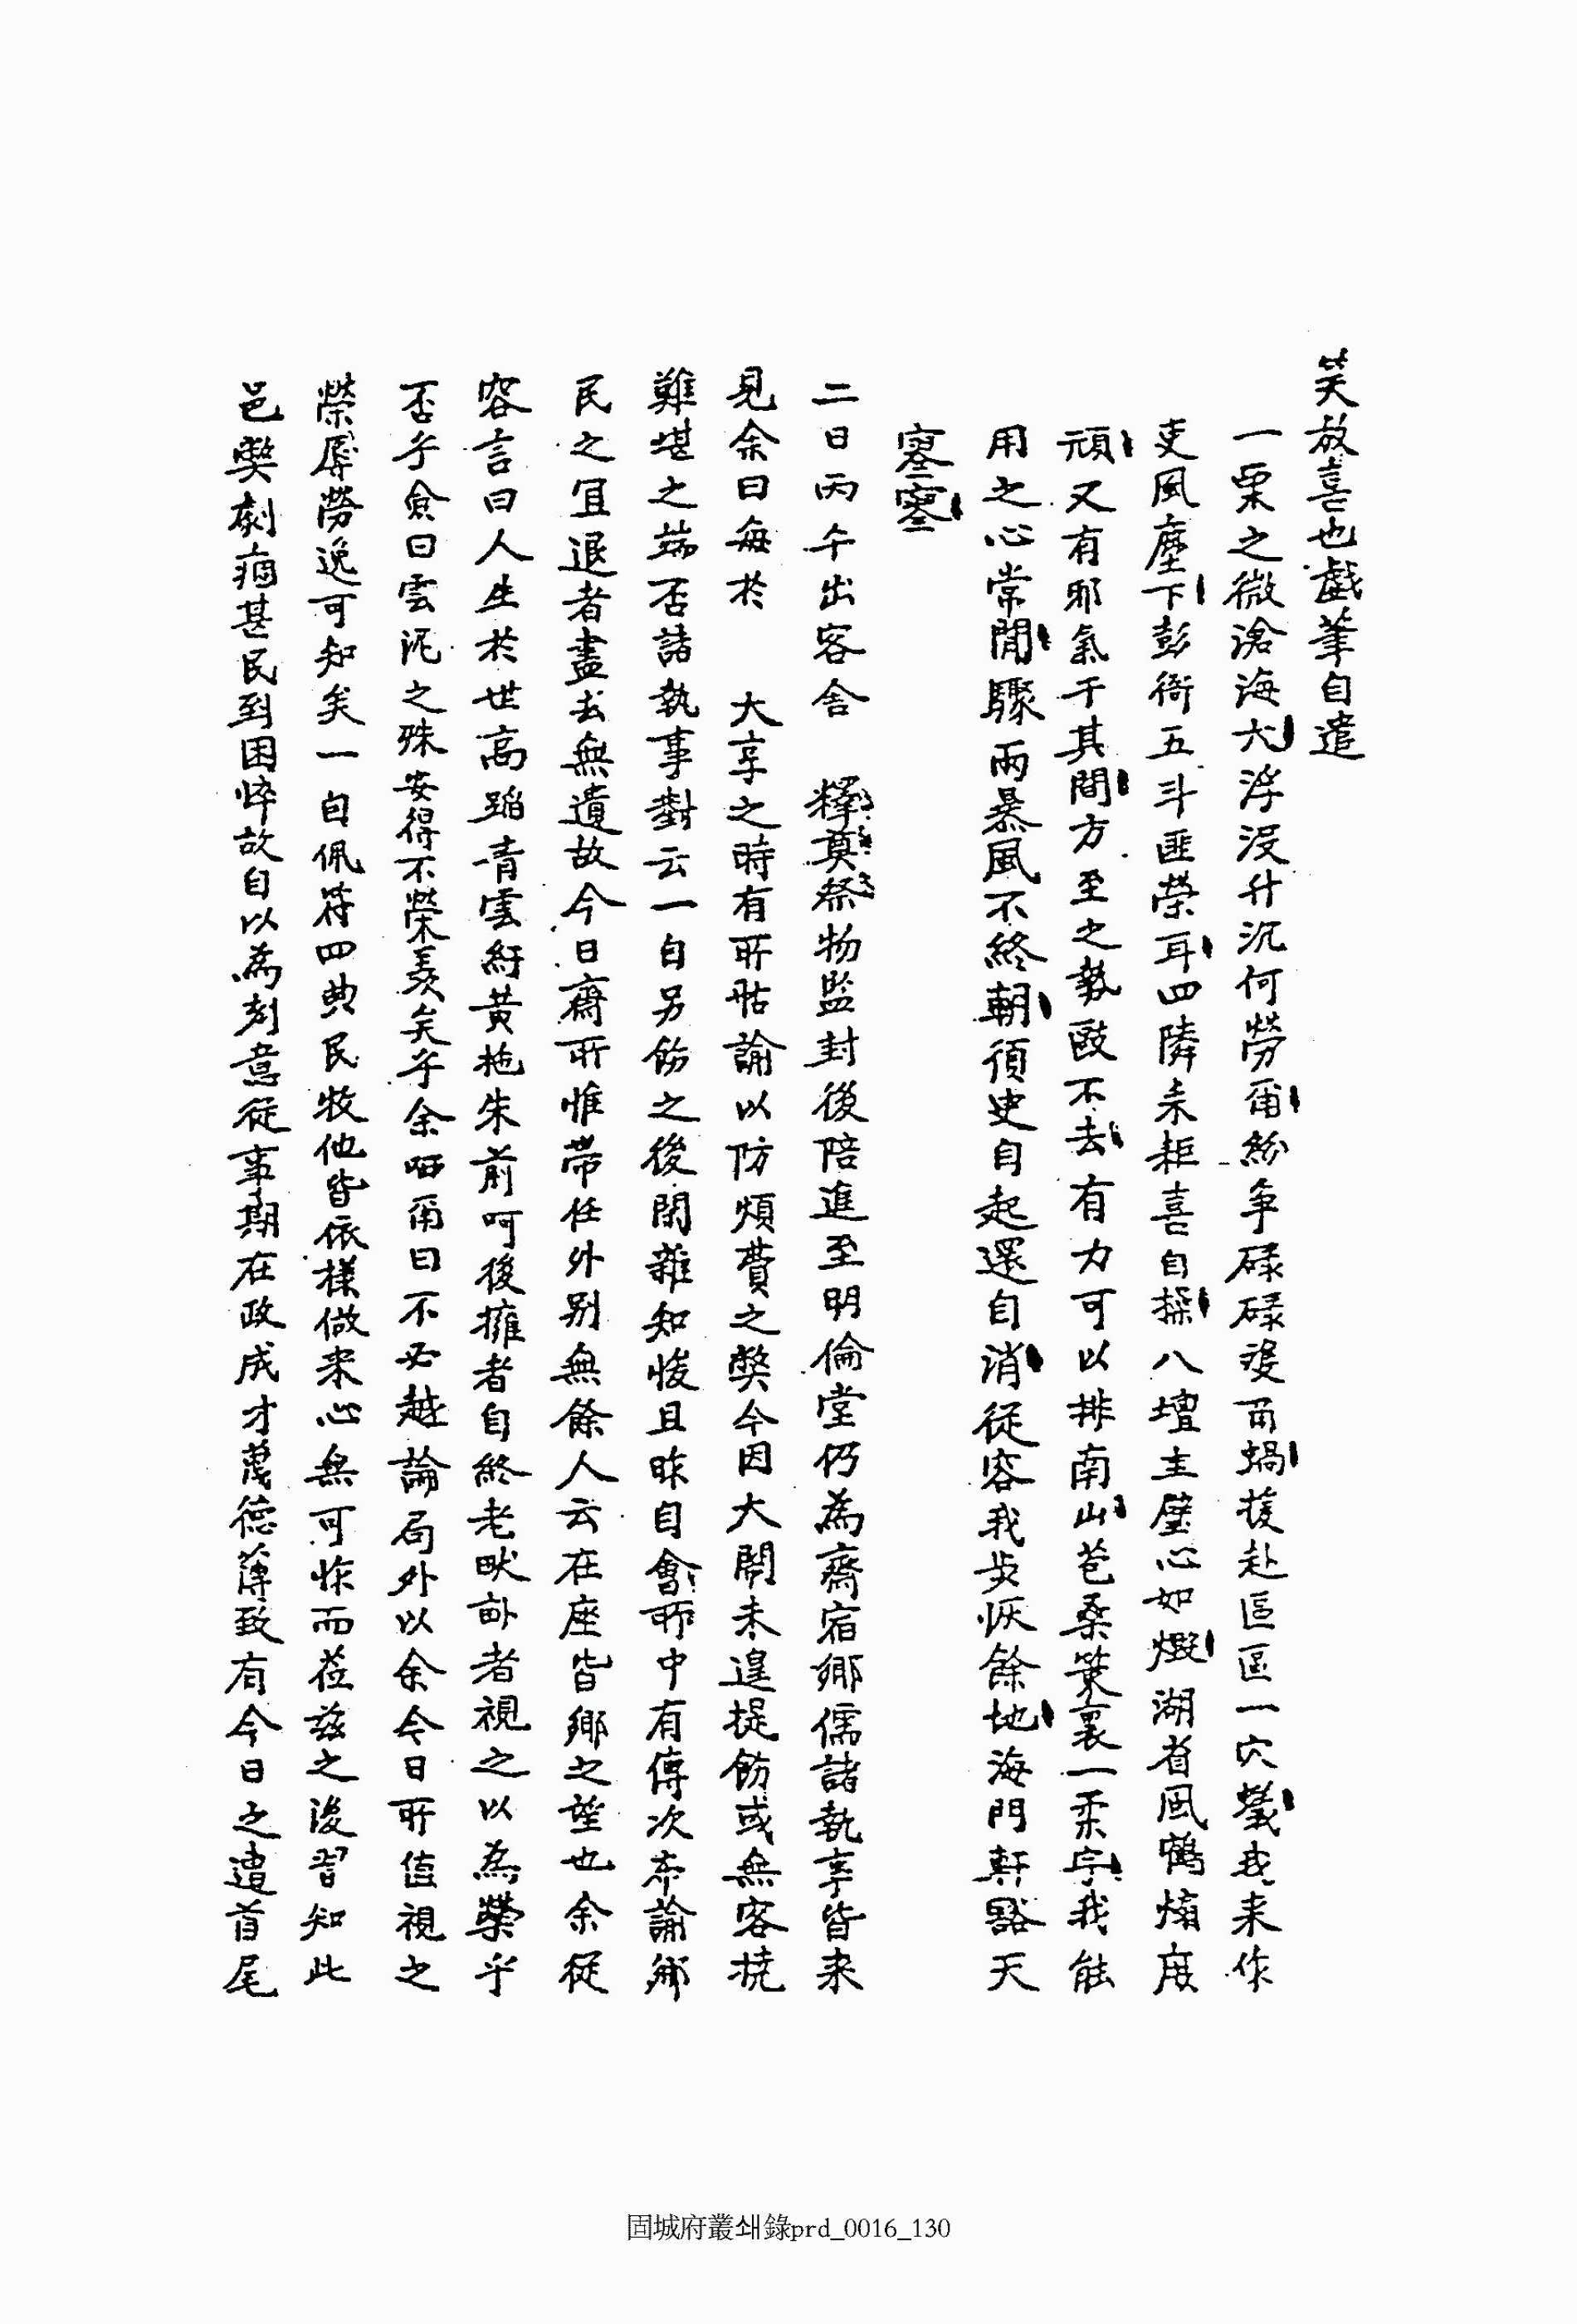 笑放喜也戱筆自遣
一粟之微滄海大浮沒升沉何勞甭紛爭碌碌爰甭蝸蒦赴區區一穴蟻我來作
吏風塵下彭衙五斗匪榮耳四隣耒耟喜自操八壇圭璧心如燬湖省風鶴煩度
頑又有邪氣干其間方至之勢敺不去有力可以排南山苞桑策裏一柔字我能
用之心常閒驟雨暴風不終朝須臾自起還自消從容我步恢餘地海門軒豁天
寥寥
二日丙午出客舍 釋奠祭物監封後陪進至明倫堂仍為齋宿鄉儒諸執事皆來
見余曰每於 大享之時有所帖諭以防煩費之獘今因大鬧未遑提飭或無客撓
難堪之端否諸執事對云一自另飭之後閑雜知悛且昧自會所中有傳次布諭鄉
民之冝退者盡去無遺故今日齋所惟帶任外別無餘人云在座皆鄉之望也余從
容言曰人生於世高蹈靑雲紆黃拖朱前呵後擁者自終老畎畝者視之以為榮乎
否乎僉曰雲泥之殊安得不榮羡矣乎余哂甭曰不必越論局外以余今日所值視之
榮辱勞逸可知矣一自佩符四典民牧他皆依樣做來心無可怍而莅玆之後習知此
邑獘劇痼甚民到困悴故自以為刻意從事期在政成才蔑德薄致有今日之遭首尾
固城府叢쇄錄prd_0016_130